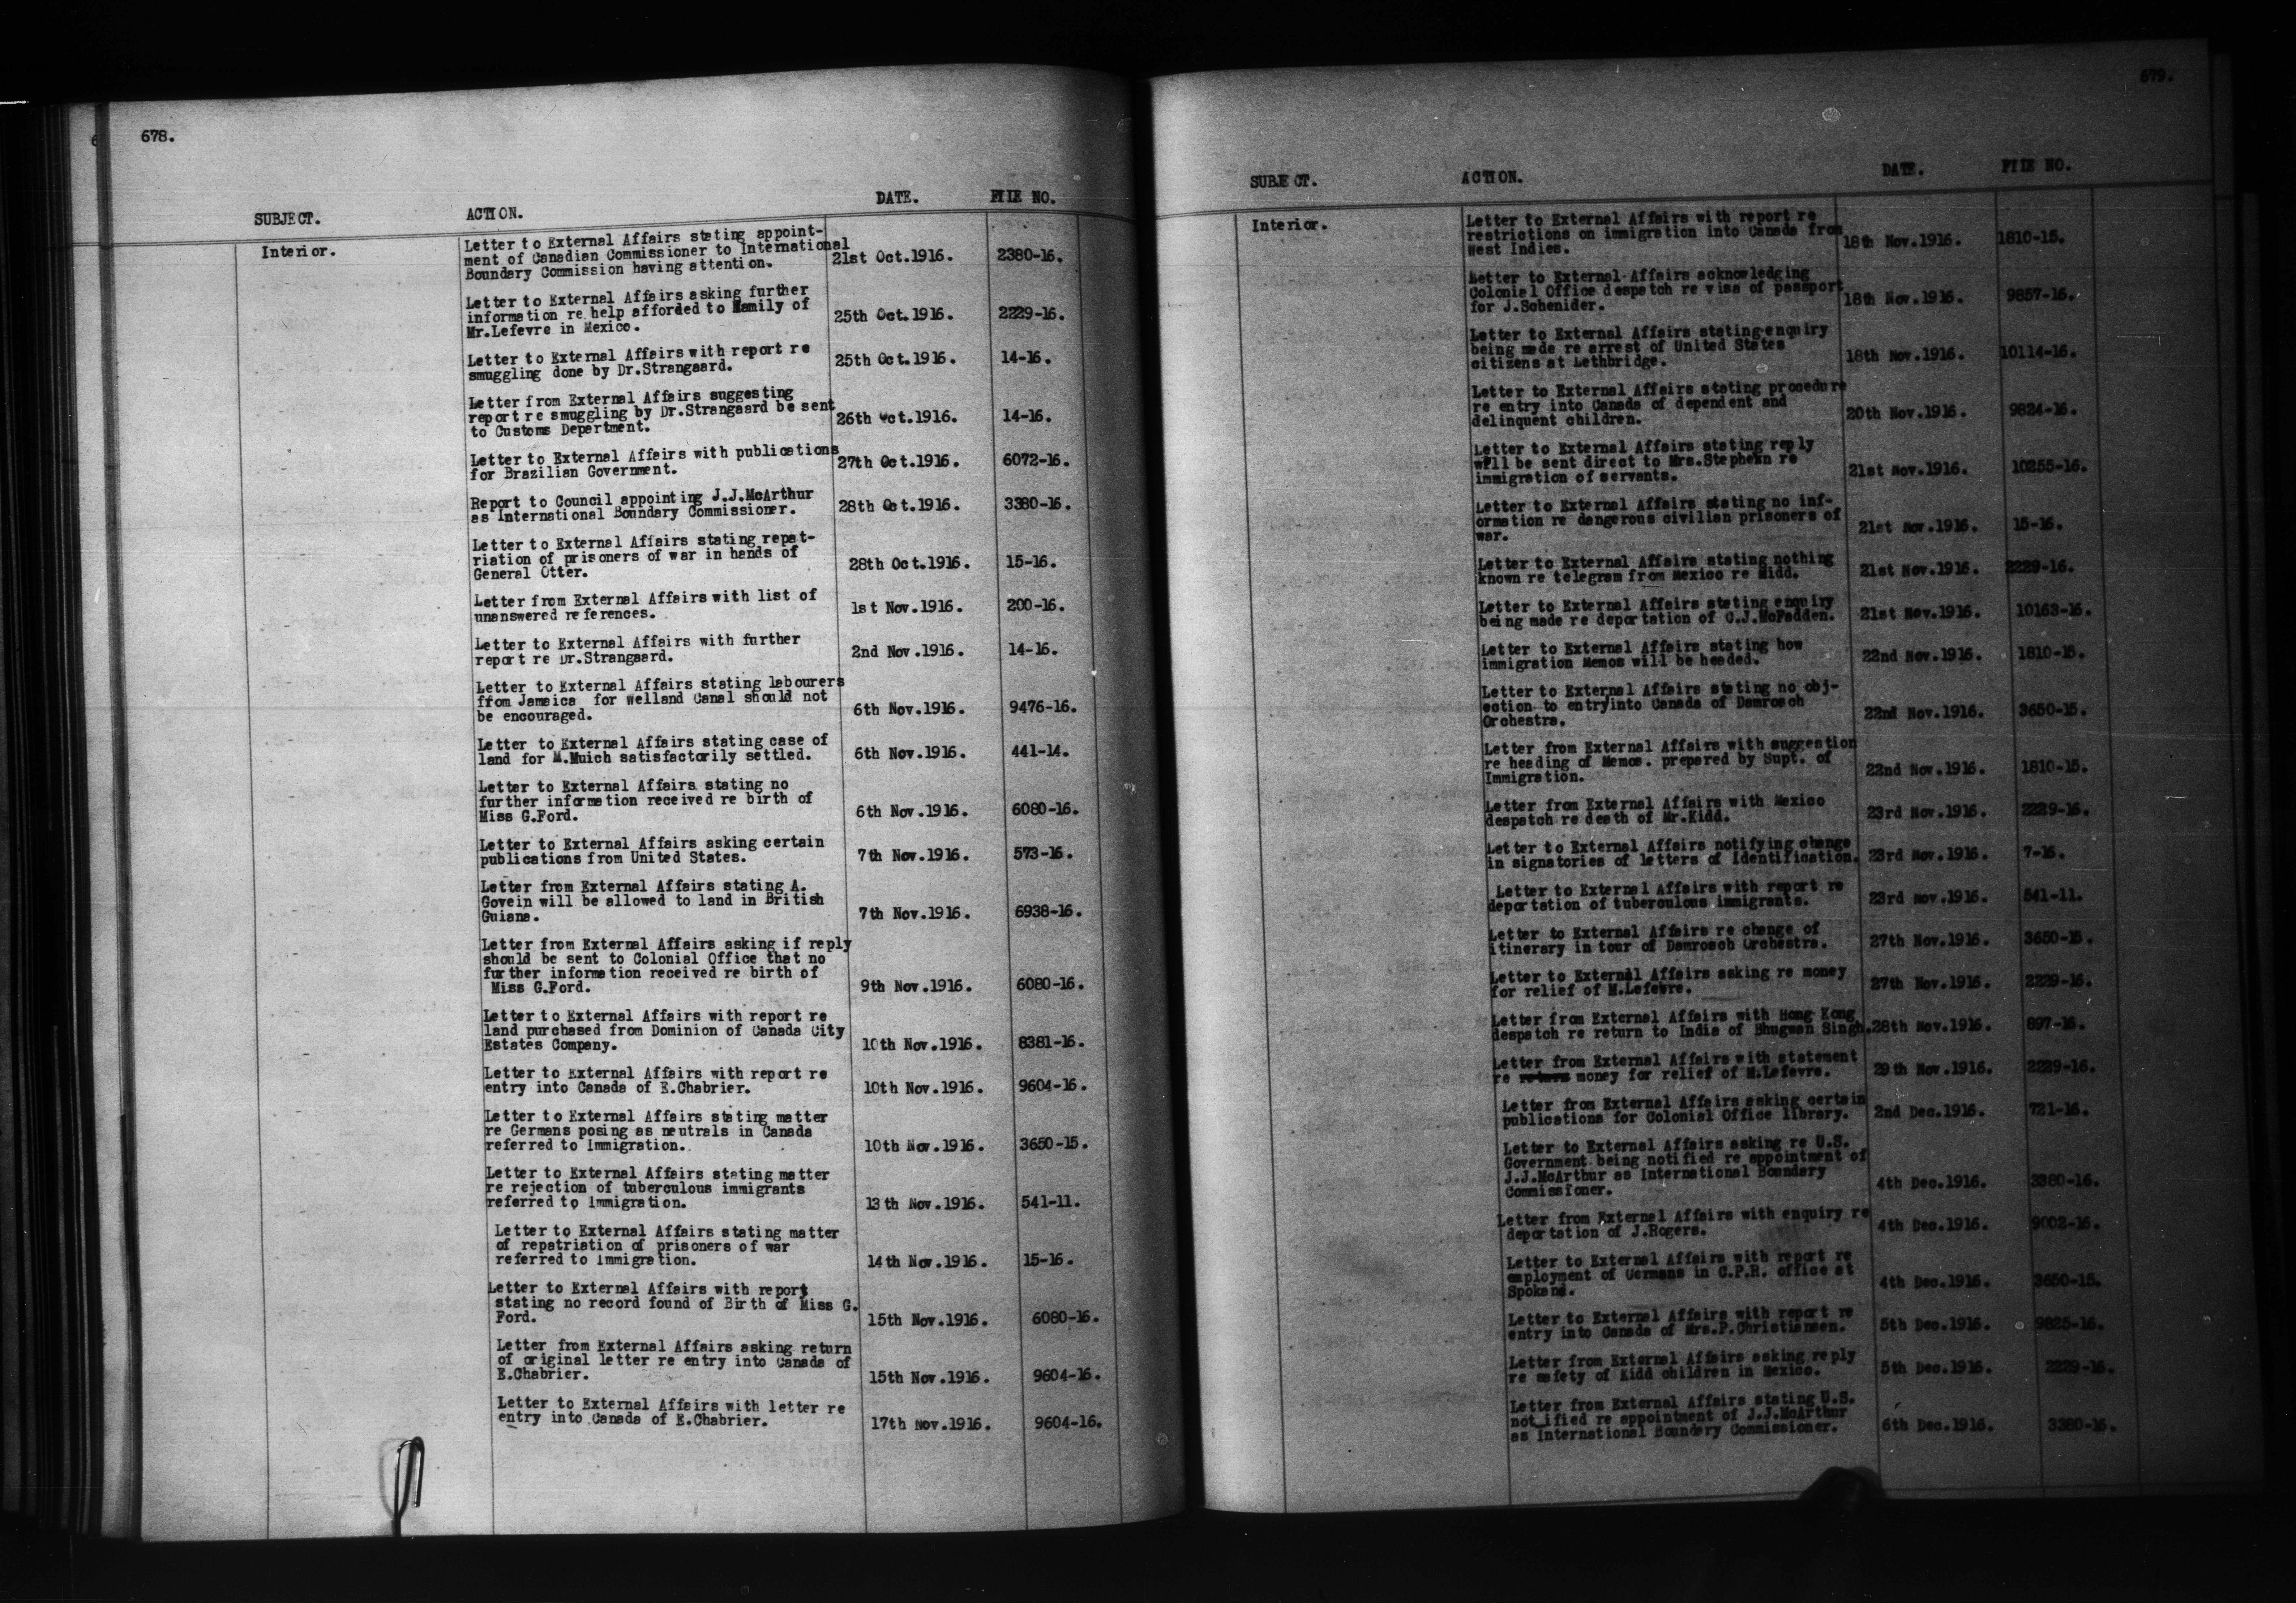 678.
SUBJECT. ACTION. DATE. FILE NO.
Interior.
Letter to External Affairs stating appoint-
ment of Canadian Commissioner to International
Boundary Commission having attention. 21st Oct.1916. 2380-16.
Letter to External Affairs asking further
information re help afforded to Family of
Mr.Lefevre in Mexico. 25th Oct.1916. 2229-16.
Letter to External Affairs with report re
smuggling done by Dr.Strangaard. 25th Oct.1916. 14-16.
Letter from External Affairs suggesting
report re smuggling by Dr.Strangaard be sent
to Customs Department. 26th Oct.1916. 14-16.
Letter to External Affairs with publications
for Brazilian Government. 27th Oct.1916. 6072-16.
Report to Council appointing J.J.McArthur
as International Boundary Commissioner. 28th Oct.1916. 3380-16.
Letter to External Affairs stating repat-
riation of prisoners of war in hands of
General Otter. 28th Oct.1916. 15-16.
Letter from External Affairs with list of
unanswered references. 1st Nov.1916. 200-16.
Letter to External Affairs with further
report re Dr.Strangaard. 2nd Nov.1916. 14-16.
Letter to External Affairs stating labourers
ffrom Jamaica for Welland Canal should not
be encouraged. 6th Nov.1916. 9476-16.
Letter to External Affairs stating case of
land for M.Muich satisfactorily settled. 6th Nov.1916. 441-14.
Letter to External Affairs stating no
further information received re birth of
Miss G.Ford. 6th Nov.1916. 6080-16.
Letter to External Affairs asking certain
publications from United States. 7th Nov.1916. 573-16.
Letter from External Affairs stating A.
Govein will be allowed to land in British
Guiana. 7th Nov.1916. 6938-16.
Letter from External Affairs asking if reply
should be sent to Colonial Office that no
further information received re birth of
Miss G.Ford. 9th Nov.1916. 6080-16.
Letter to External Affairs with report re
land purchased from Dominion of Canada City
Estates Company. 10th Nov.1916. 8381-16.
Letter to External Affairs with report re
entry into Canada of E.Chabrier. 10th Nov.1916. 9604-16.
Letter to External Affairs stating matter
re Germans posing as neutrals in Canada
referred to Immigration. 10th Nov.1916. 3650-15.
Letter to External Affairs stating matter
re rejection of tuberculous immigrants
referred to Immigration. 13th Nov.1916. 541-11.
Letter to External Affairs stating matter
of repatriation of prisoners of war
referred to Immigration. 14th Nov.1916. 15-16.
Letter to External Affairs with report
stating no record found of Birth of Miss G.
Ford. 15th Nov.1916. 6080-16.
Letter from External Affairs asking return
of original letter re entry into Canada of
E.Chabrier. 15th Nov.1916. 9604-16.
Letter to External Affairs with letter re
entry into Canada of E.Chabrier. 17th Nov.1916. 9604-16.
679.
SUBJECT. ACTION. DATE. FILE NO.
Interior.
Letter to External Affairs with report re
restrictions on immigration into Canada from
West Indies. 18th Nov.1916. 1810-15.
Letter to External Affairs acknowledging
Colonial Office despatch re visa of passport
for J.Schenider. 18th Nov.1916. 9857-16.
Letter to External Affairs stating enquiry
being made re arrest of United States
citizens at Lethbridge. 18th Nov.1916. 10114-16.
Letter to External Affairs stating procedure
re entry into Canada of dependent and
delinquent children. 20th Nov.1916. 9824-16.
Letter to External Affairs stating reply
will be sent direct to Mrs.Stephexn re
immigration of servants. 21st Nov.1916. 10255-16.
Letter to External Affairs stating no inf-
ormation re dangerous civilian prisoners of
war. 21st Nov.1916. 15-16.
Letter to External Affairs stating nothing
known re telegram from Mexico re Midd. 21st Nov.1916. 2229-16.
Letter to External Affairs stating enquiry
being made re deportation of C.J.McFadden. 21st Nov.1916. 10163-16.
Letter to External Affairs stating how
immigration Memos will be headed. 22nd Nov.1916. 1810-15.
Letter to External Affairs stating no obj-
ection to entryinto Canada of Damrosch
Orchestra. 22nd Nov.1916. 3650-15.
Letter from External Affairs with suggestion
re heading of Memos. prepared by Supt. of
Immigration. 22nd Nov.1916. 1810-15.
Letter from External Affairs with Mexico
despatch re death of Mr.Kidd. 23rd Nov.1916. 2229-16.
Letter to External Affairs notifying change
in signatories of letters of Identification. 23rd Nov.1916. 7-16.
Letter to External Affairs with report re
deportation of tuberculous immigrants. 23rd Nov.1916. 541-11.
Letter to External Affairs re change of
itinerary in tour of Damrosch Orchestra. 27th Nov.1916. 3650-15.
Letter to External Affairs asking re money
for relief of M.Lefevre. 27th Nov.1916. 2229-16.
Letter from External Affairs with Hong Kong
despatch re return to India of Bhugwan Singh. 28th Nov.1916. 897-16.
Letter from External Affairs with statement
re money for relief of M.Lefevre. 29th Nov.1916. 2229-16.
Letter from External Affairs asking certain
publications for Colonial Office library. 2nd Dec.1916. 721-16.
Letter to External Affairs asking re U.S.
Government being notified re appointment of
J.J.McArthur as International Boundary
Commissioner. 4th Dec.1916. 3380-16.
Letter from External Affairs with enquiry re
deportation of J.Rogers. 4th Dec.1916. 9002-16.
Letter to External Affairs with report re
employment of Germans in C.P.R. office at
Spokane. 4th Dec.1916. 3650-15.
Letter to External Affairs with report re
entry into Canada of Mrs.P.Christiansen. 5th Dec.1916. 9825-16.
Letter from External Affairs asking reply
re safety of Kidd children in Mexico. 5th Dec.1916. 2229-16.
Letter from External Affairs stating U.S.
notified re appointment of J.J.McArthur
as International Boundary Commissioner. 6th Dec.1916. 3380-16.